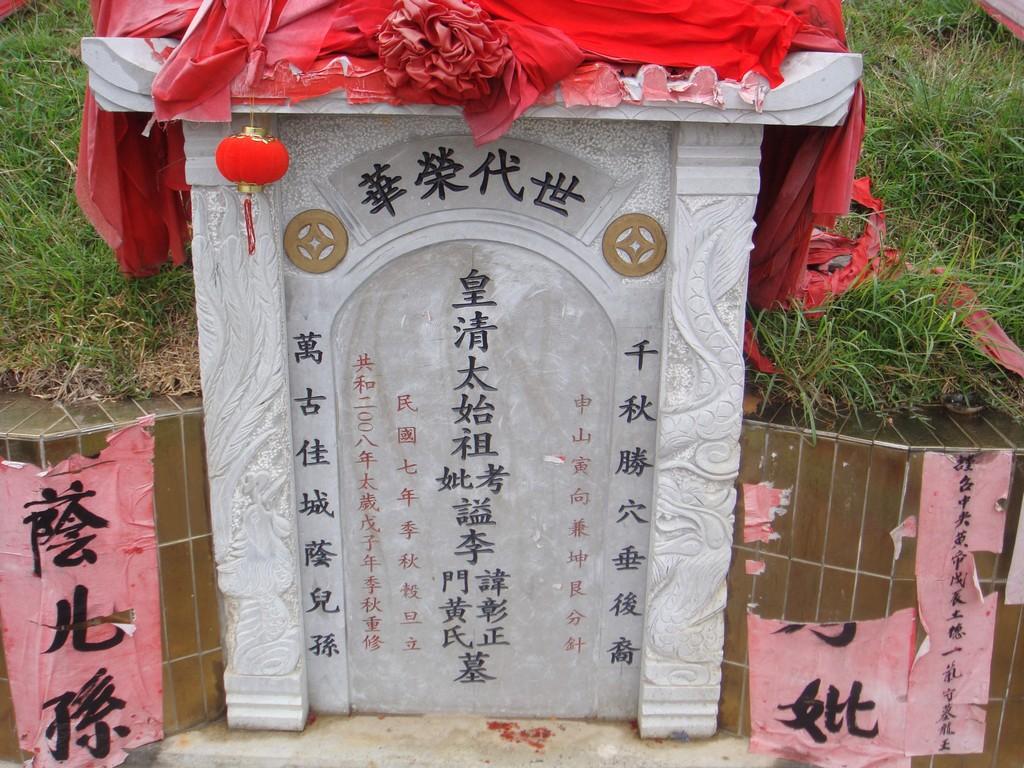 世代榮華
千秋勝穴垂後裔
申山寅向兼坤艮分針
皇清太始祖考妣謚李諱彰正門黃氏墓
民國七年季秋穀旦立
共和二〇〇八年太歲戊子年季秋重修
萬古佳城蔭兒孫
謹名中央黃帝戊辰土德一氣守墓龍王
妣
蔭儿孫